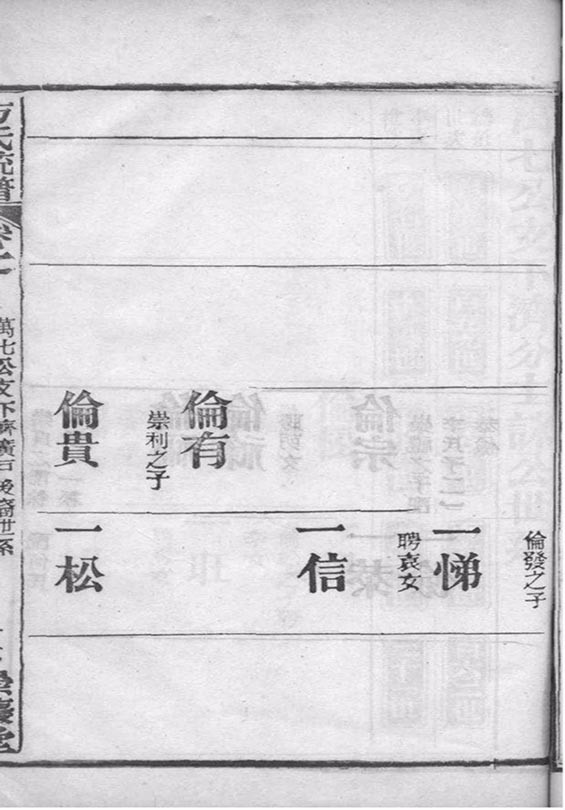 倫發之子
一悌
聘袁女
一信
倫有
崇利之子
倫貴
一松
方氏統譜
萬七公支下濟廣公後裔世系